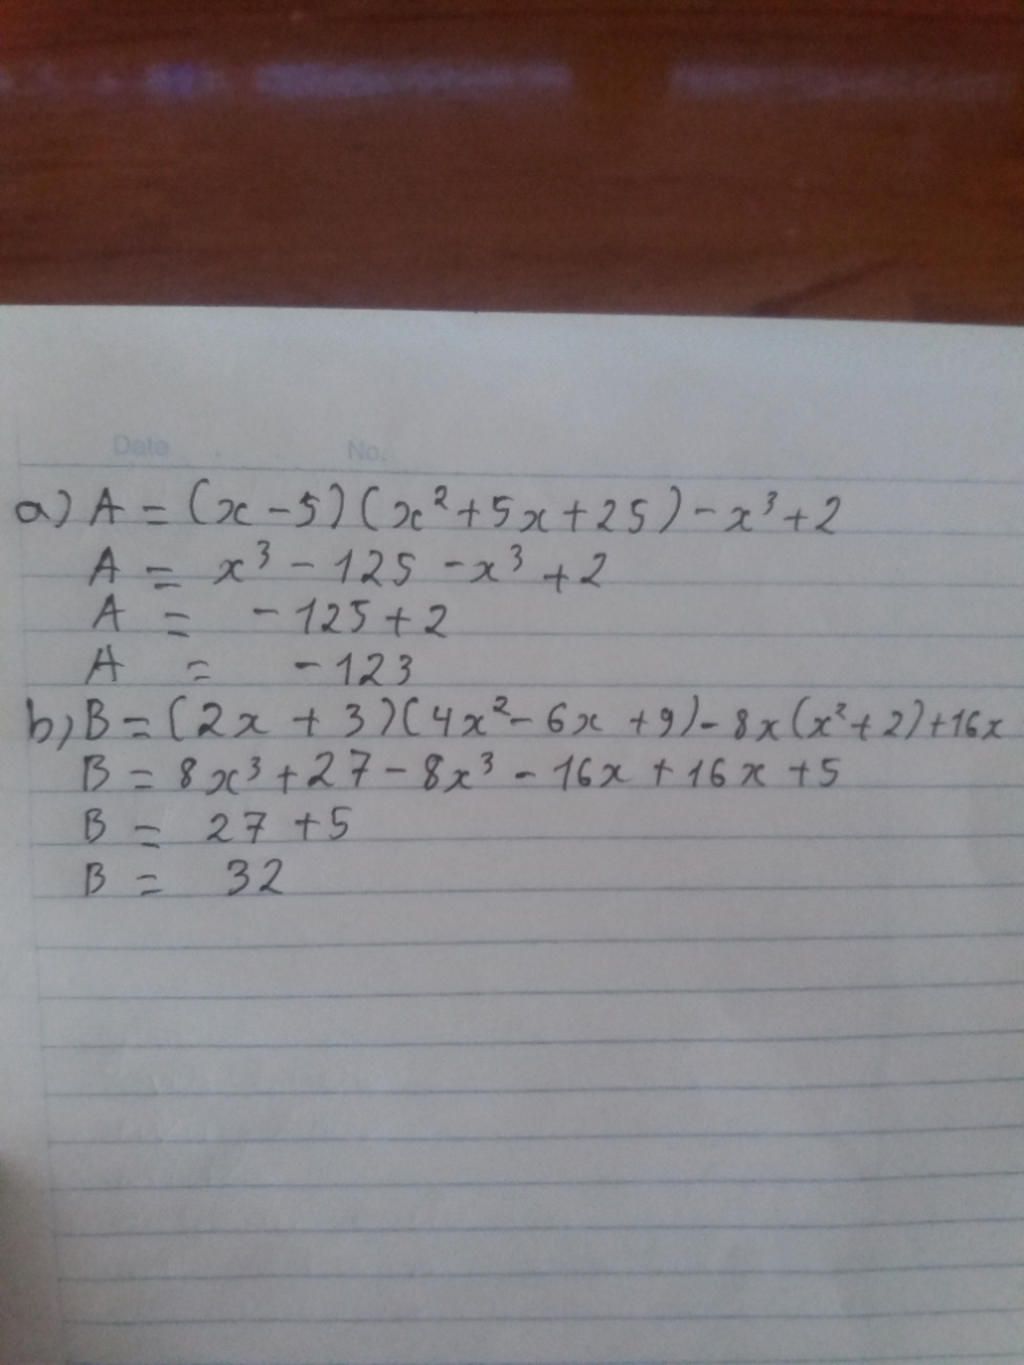 Date No.
a) A = (x - 5)(x² + 5x + 25) - x³ + 2
A = x³ - 125 - x³ + 2
A = - 125 + 2
A = - 123
b) B = (2x + 3)(4x² - 6x + 9) - 8x(x² + 2) + 16x
B = 8x³ + 27 - 8x³ - 16x + 16x + 5
B = 27 + 5
B = 32